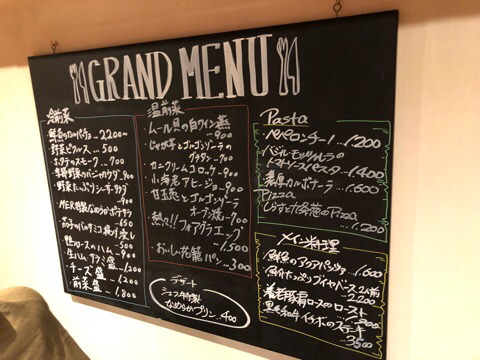 GRAND MENU
冷前菜
鮮魚のカルパッチョ...2,200
野菜ピクルス...500
ポテサラスモーク...700
季節野菜のバーニャカウダ...900
野菜たっぷりシーザーサラダ
-900
MER特製なめらかポテサラ
-650
-500
生ロースのハム...900
生ハム、サラミ盛...1,200
チーズ盛-1,200
前菜盛-1,800
温前菜
ムール貝の白ワイン蒸
-900
じゃが芋とゴルゴンゾーラの
グラタン-700
カニクリームコロッケ-900
小海老アヒージョ-900
甘玉葱とゴルゴンゾーラ
オーブン焼-700
熱々!!フォアグラエッグ
-1,500
おいしい花籠パン-300
デザート
シェフ特製
なめらかプリン.400
Pasta
ペペロンチーノ...1200
バジルモッツァレラの
トマトソースパスタ...1400
濃厚カルボナーラ...1600
Pizza
しらすと九条葱のPizza
...1,200
メイン料理
鮮魚のアクアパッツァ...1,600
魚介たっぷりブイヤベース2人前
2,200
ロースのロースト
黒毛和牛イチボのステーキ
3500